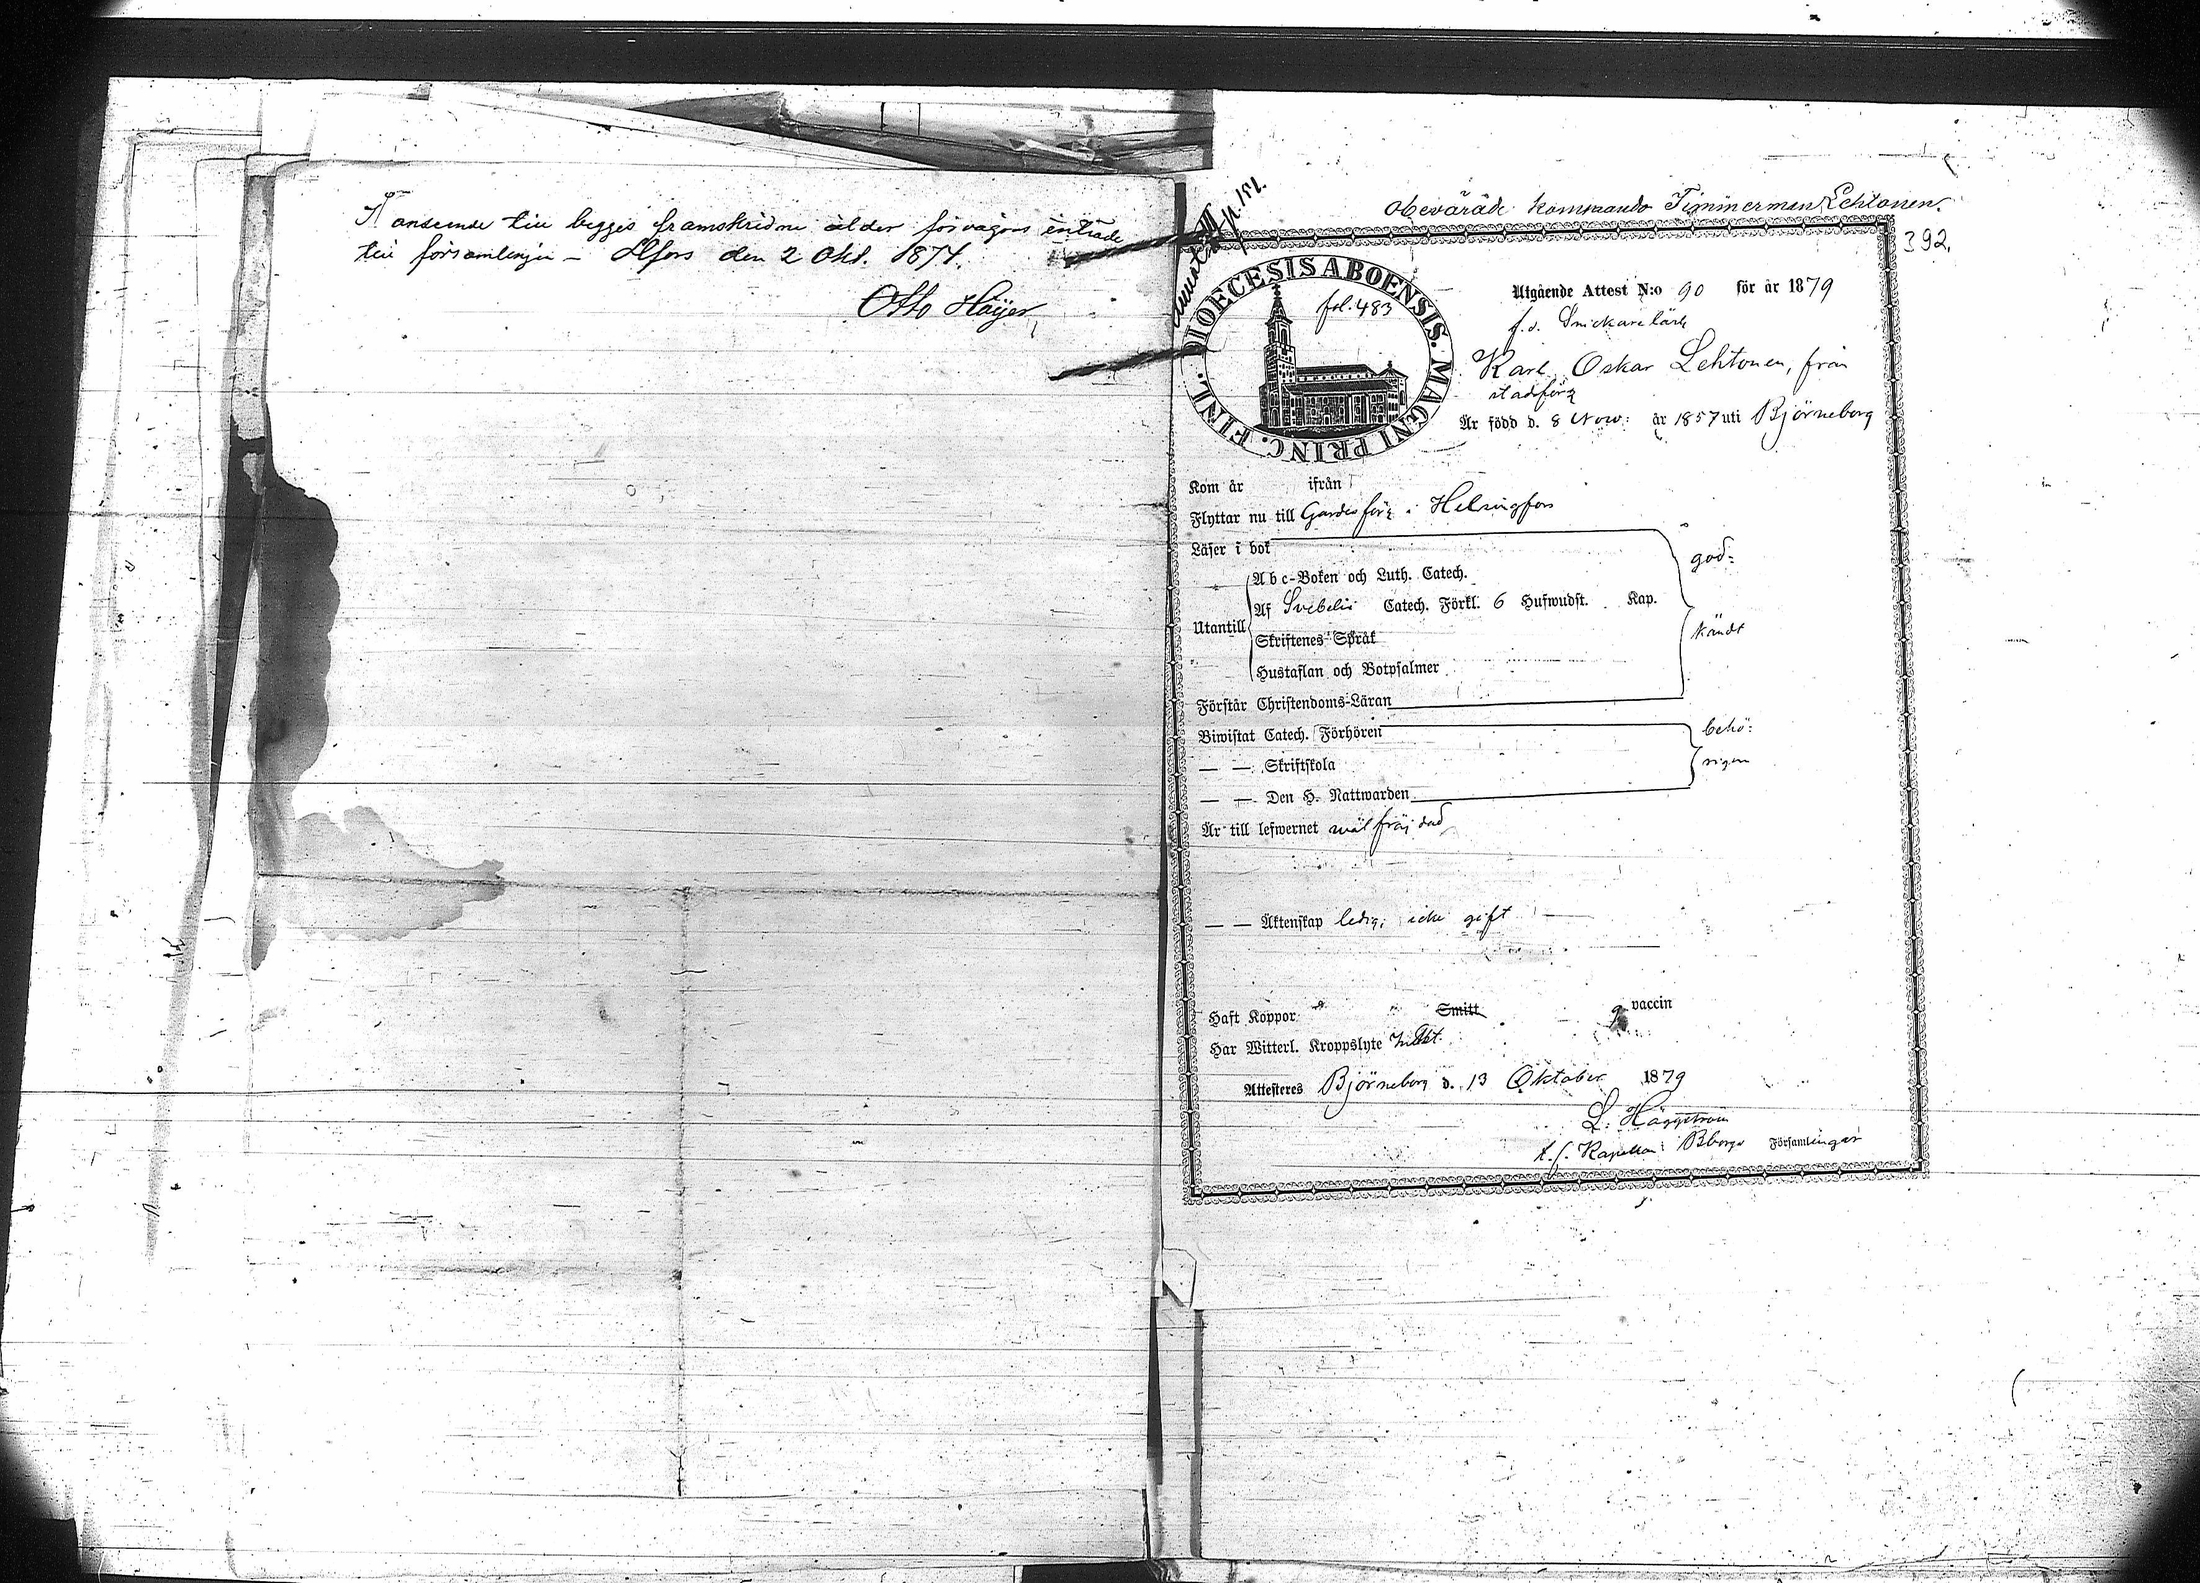 I anseende till begges framskridne ålder förvägras inträde
till församlingen – Hfors den 2 Okt. 1874.
Otto Höijer
p. 151.
Obeväräde kommando Timmerman Lehtonen.
392.
DIOECESIS ABOENSIS. MAGNI PRINC. FINL.
fol. 483
Utgående Attest N:o 90 för år 1879
f.d. Snickarelärl
Karl Oskar Lehtonen, från
stadsförs
Är född d. 8 Nov: år 1857 uti Björneborg
Kom år ifrån
Flyttar nu till Gardesförs i Helsingfors
Läser i bok
god:
Utantill
Abc-Boken och Luth. Catech.
Af Svebelii Catech. Förkl. 6 Hufwudst. Kap.
Skriftenes Språk
kändt
Hustaflan och Botpsalmer
Förstår Christendoms-Läran
Biwistat Catech. Förhören
behö:
— — Skriftskola
rigen
— — Den H. Nattwarden
Är till lefwernet wälfräjdad
— — Äktenskap ledig; icke gift
Haft Koppor Smitt vaccin
Har Witterl. Kroppslyte intet
Attesteres Björneborg d. 13 Oktober 1879
L. Häggström
t.f. Kapellan i Bborgs Församlingar